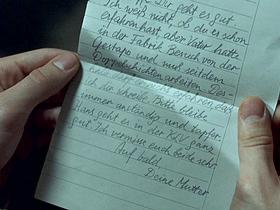 Dir geht es gut
Ich weiß nicht, ob du es schon
erfahren hast, aber Vater hatte
in der Fabrik Besuch von der
Gestapo und muß seitdem
Doppelschichten arbeiten. Das
immer anständig und tapfer.
Hans geht es in der KLV ganz
gut. Ich vermisse euch beide sehr.
Auf bald
Deine Mutter